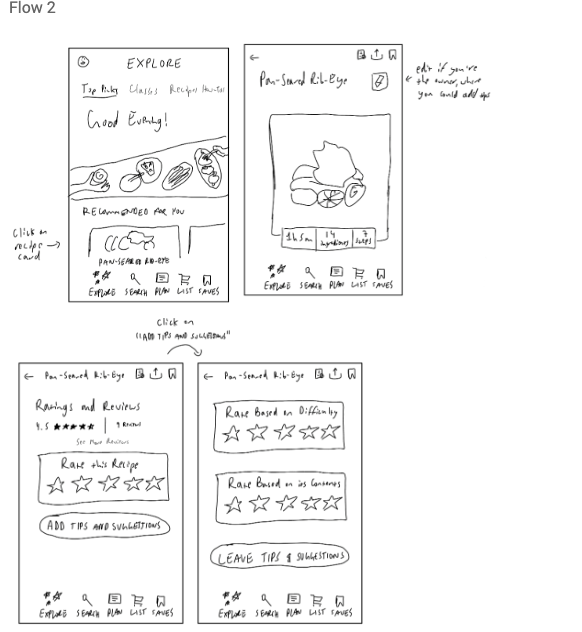 Flow 2
EXPLORE
Top Picks Classes Recipes How-Tos
Good Evening!
RECOMMENDED FOR YOU
PAN-SEARED RIB-EYE
EXPLORE SEARCH PLAN LIST SAVES
Click on
recipe
card
Pan-Seared Rib-Eye
1h 5m
14
ingredients
7
steps
EXPLORE SEARCH PLAN LIST SAVES
edit if you're
the owner, where
you could add
Click on
"ADD TIPS AND SUGGESTIONS"
Pan-Seared Rib-Eye
Ratings and Reviews
4.5
See More Reviews
Rate this Recipe
ADD TIPS AND SUGGESTIONS
EXPLORE SEARCH PLAN LIST SAVES
Pan-Seared Rib-Eye
Rate Based on Difficulty
Rate Based on its
LEAVE TIPS & SUGGESTIONS
EXPLORE SEARCH PLAN LIST SAVES